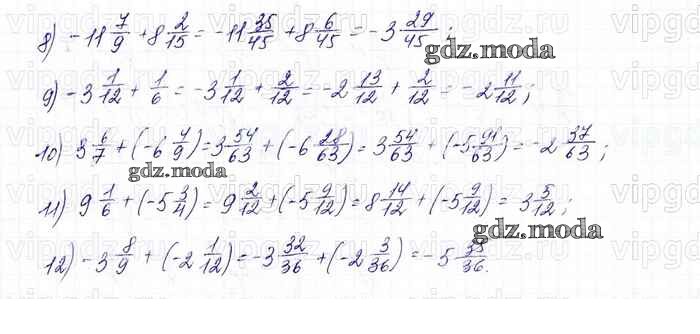 8) -11 7/9 + 8 2/15 = -11 35/45 + 8 6/45 = -3 29/45 ;
gdz.moda
9) -3 1/12 + 1/6 = -3 1/12 + 2/12 = -2 13/12 + 2/12 = -2 11/12 ;
10) 3 6/7 + (-6 4/9) = 3 54/63 + (-6 28/63) = 3 54/63 + (-5 91/63) = -2 37/63 ;
gdz.moda
11) 9 1/6 + (-5 3/4) = 9 2/12 + (-5 9/12) = 8 14/12 + (-5 9/12) = 3 5/12 ;
gdz.moda
12) -3 8/9 + (-2 1/12) = -3 32/36 + (-2 3/36) = -5 35/36 .